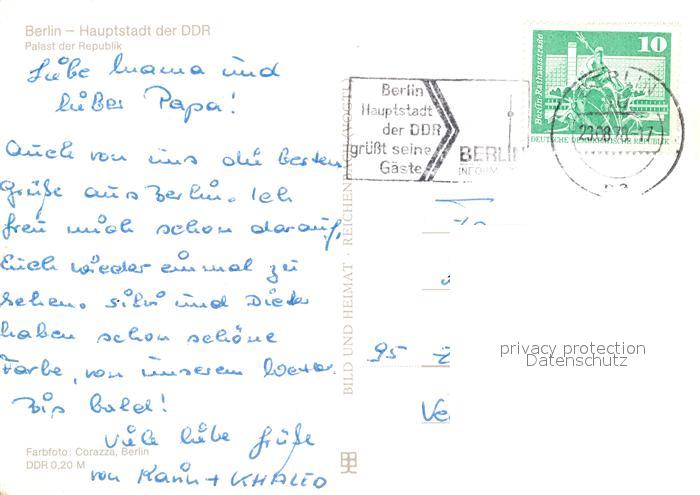 Berlin – Hauptstadt der DDR
Palast der Republik
Liebe Mama und
lieber Papa!
Auch von uns die besten
Grüße aus Berlin. Ich
freu mich schon darauf,
Euch wieder einmal zu
sehen. Silvi und Dieter
haben schon schöne
Farbe, von unserem Wetter.
Bis bald!
Viele liebe Grüße
von Karin + KHALED
Farbfoto: Corazza, Berlin
DDR 0,20 M
BILD UND HEIMAT · REICHENBACH (VOGTL)
Berlin
Hauptstadt
der DDR
grüßt seine
Gäste
BERLIN
INFORM
Berlin-Rathausstraße
10
DEUTSCHE DEMOKRATISCHE REPUBLIK
BERLIN
23.08.78-17
95
privacy protection
Datenschutz